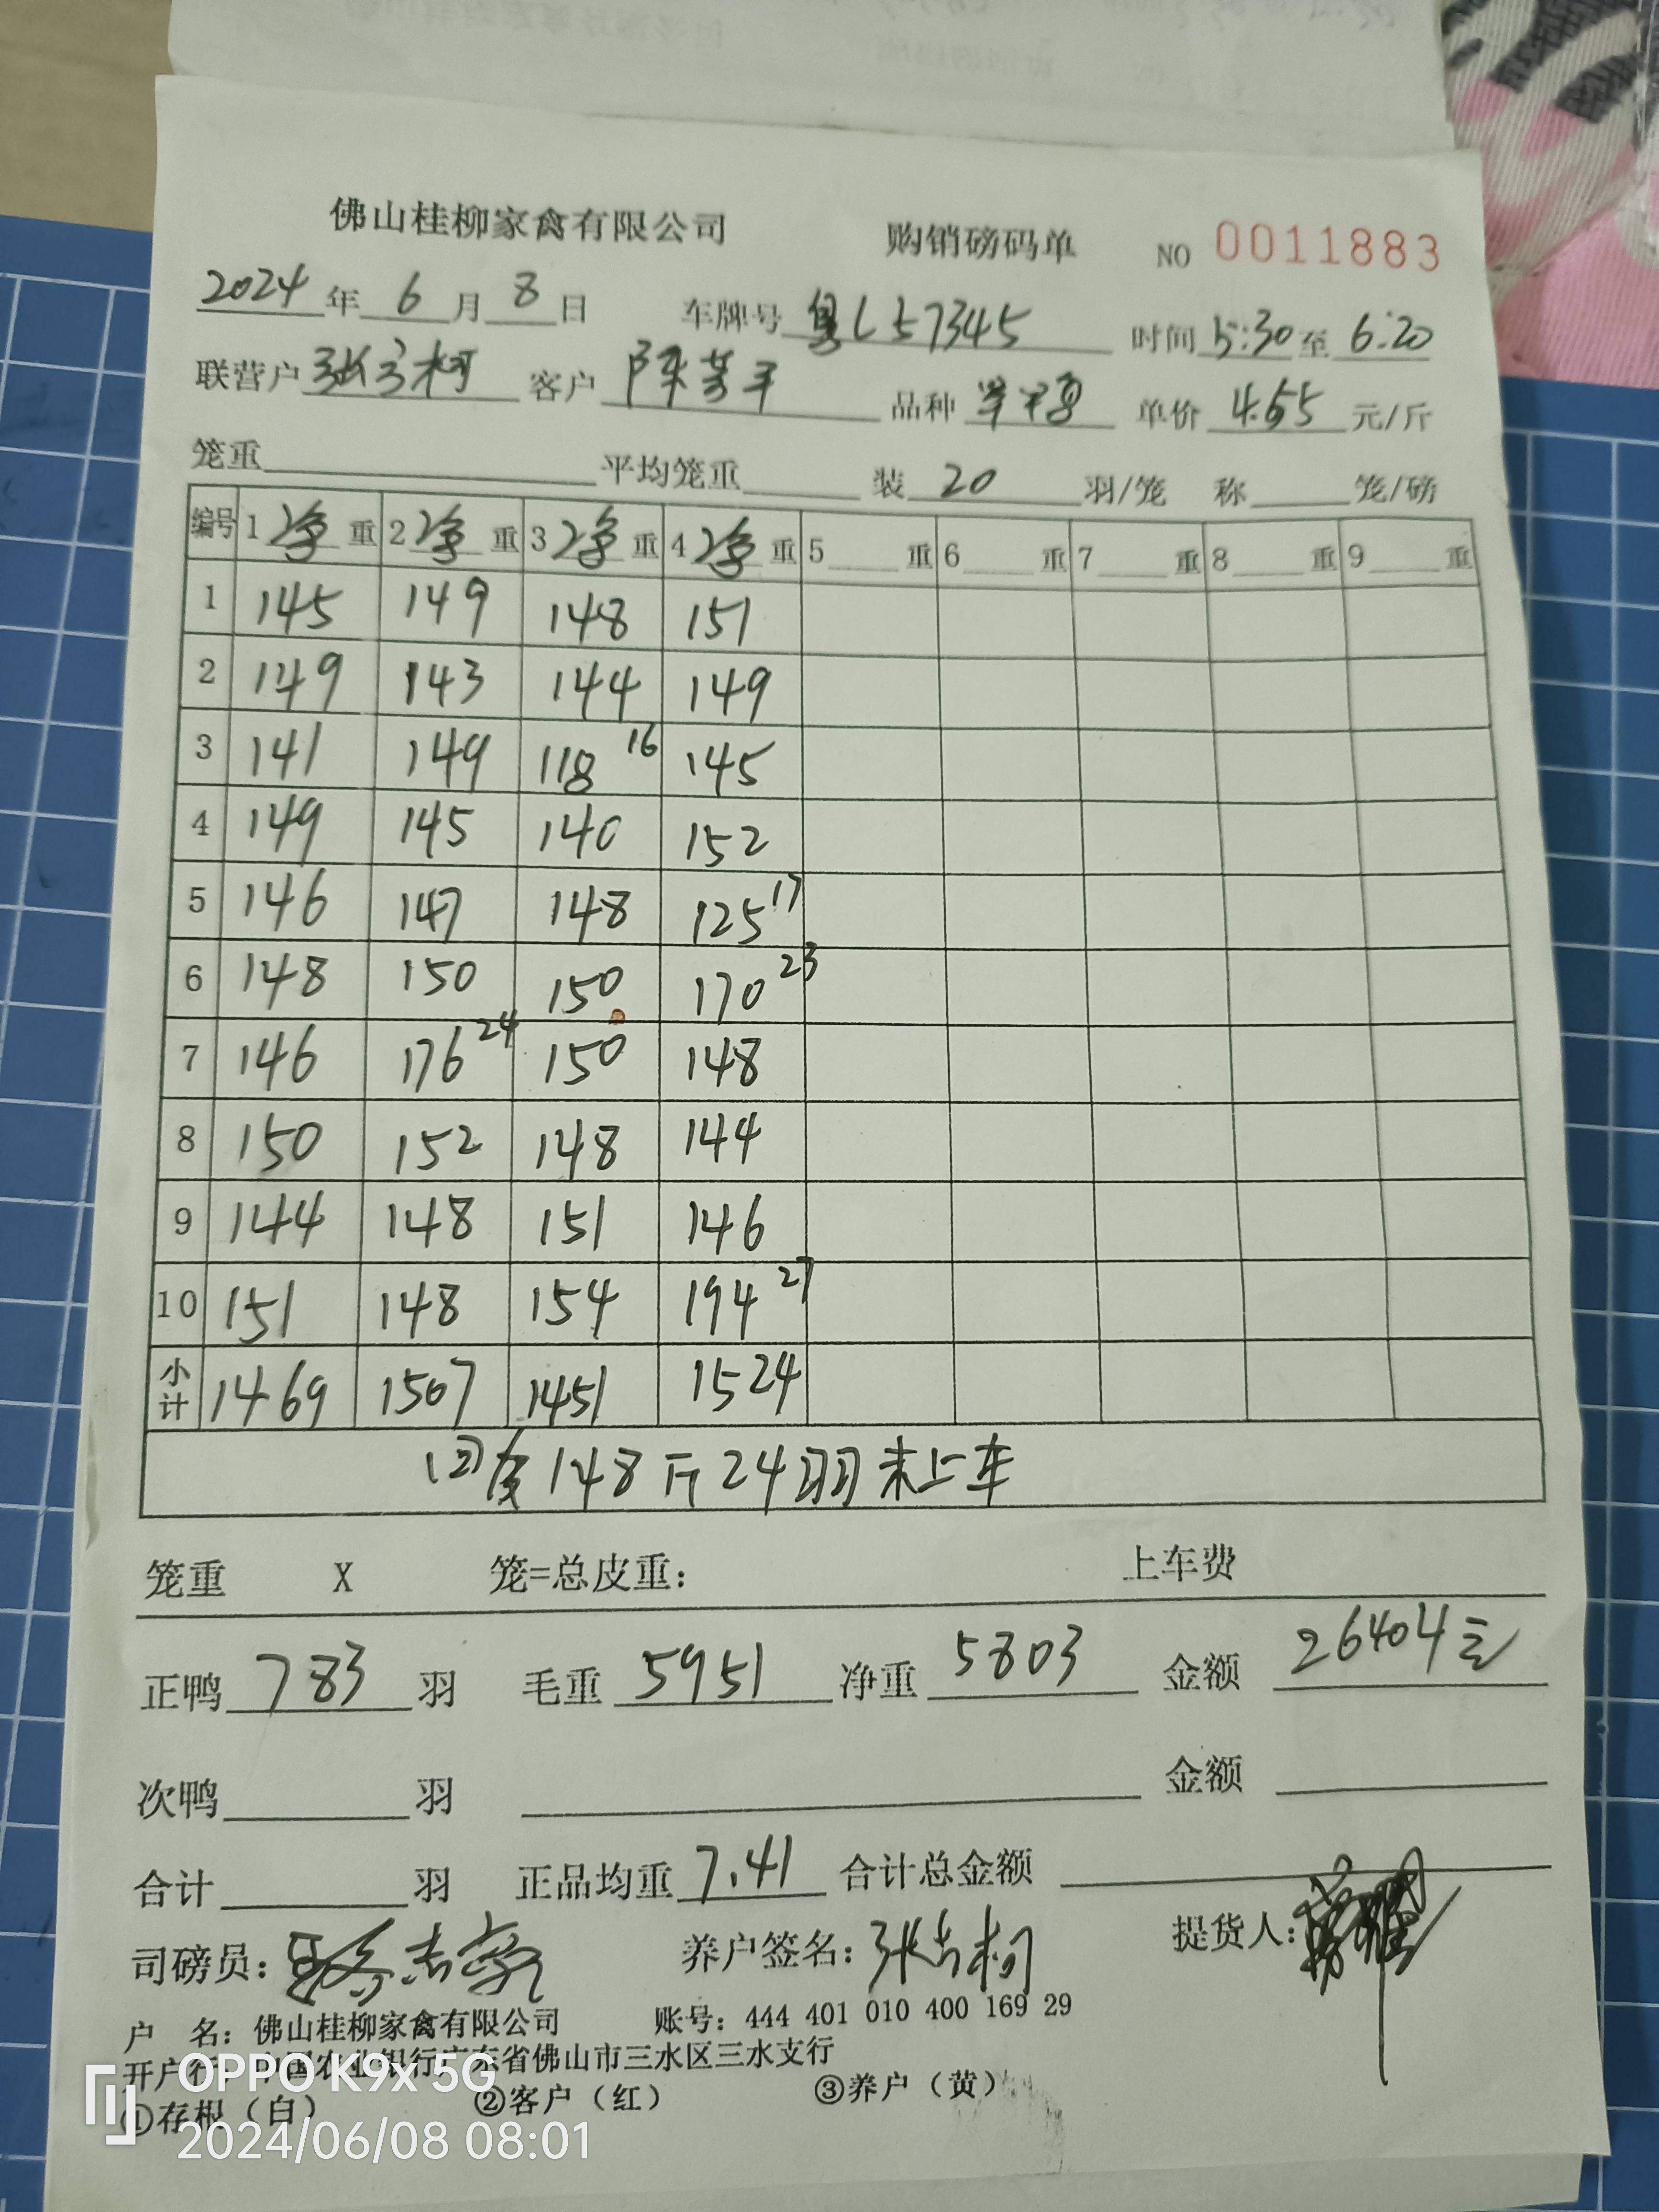 佛山桂柳家禽有限公司 购销磅码单 NO 0011883
2024年6月8日 车牌号 粤L57345 时间 5:30 至 6:20
联营户 客户 陈芳平 品种 单价 4.55 元/斤
笼重 平均笼重 装 20 羽/笼 称 笼/磅
编号 1 净 重 2 净 重 3 净 重 4 净 重 5 重 6 重 7 重 8 重 9 重
1 145 149 148 151
2 149 143 144 149
3 141 149 118 16 145
4 149 145 140 152
5 146 147 148 125 17
6 148 150 150 170 23
7 146 176 24 150 148
8 150 152 148 144
9 144 148 151 146
10 151 148 154 194 27
小计 1469 1507 1451 1524
回皮 148 斤 24 羽 未上车
笼重 X 笼=总皮重： 上车费
正鸭 783 羽 毛重 5951 净重 5803 金额 26404元
次鸭 羽 金额
合计 羽 正品均重 7.41 合计总金额
司磅员： 养户签名： 提货人：
户 名：佛山桂柳家禽有限公司 账号：444 401 010 400 169 29
开户行：中国农业银行广东省佛山市三水区三水支行
①存根（白） ②客户（红） ③养户（黄）
OPPO K9x 5G
2024/06/08 08:01